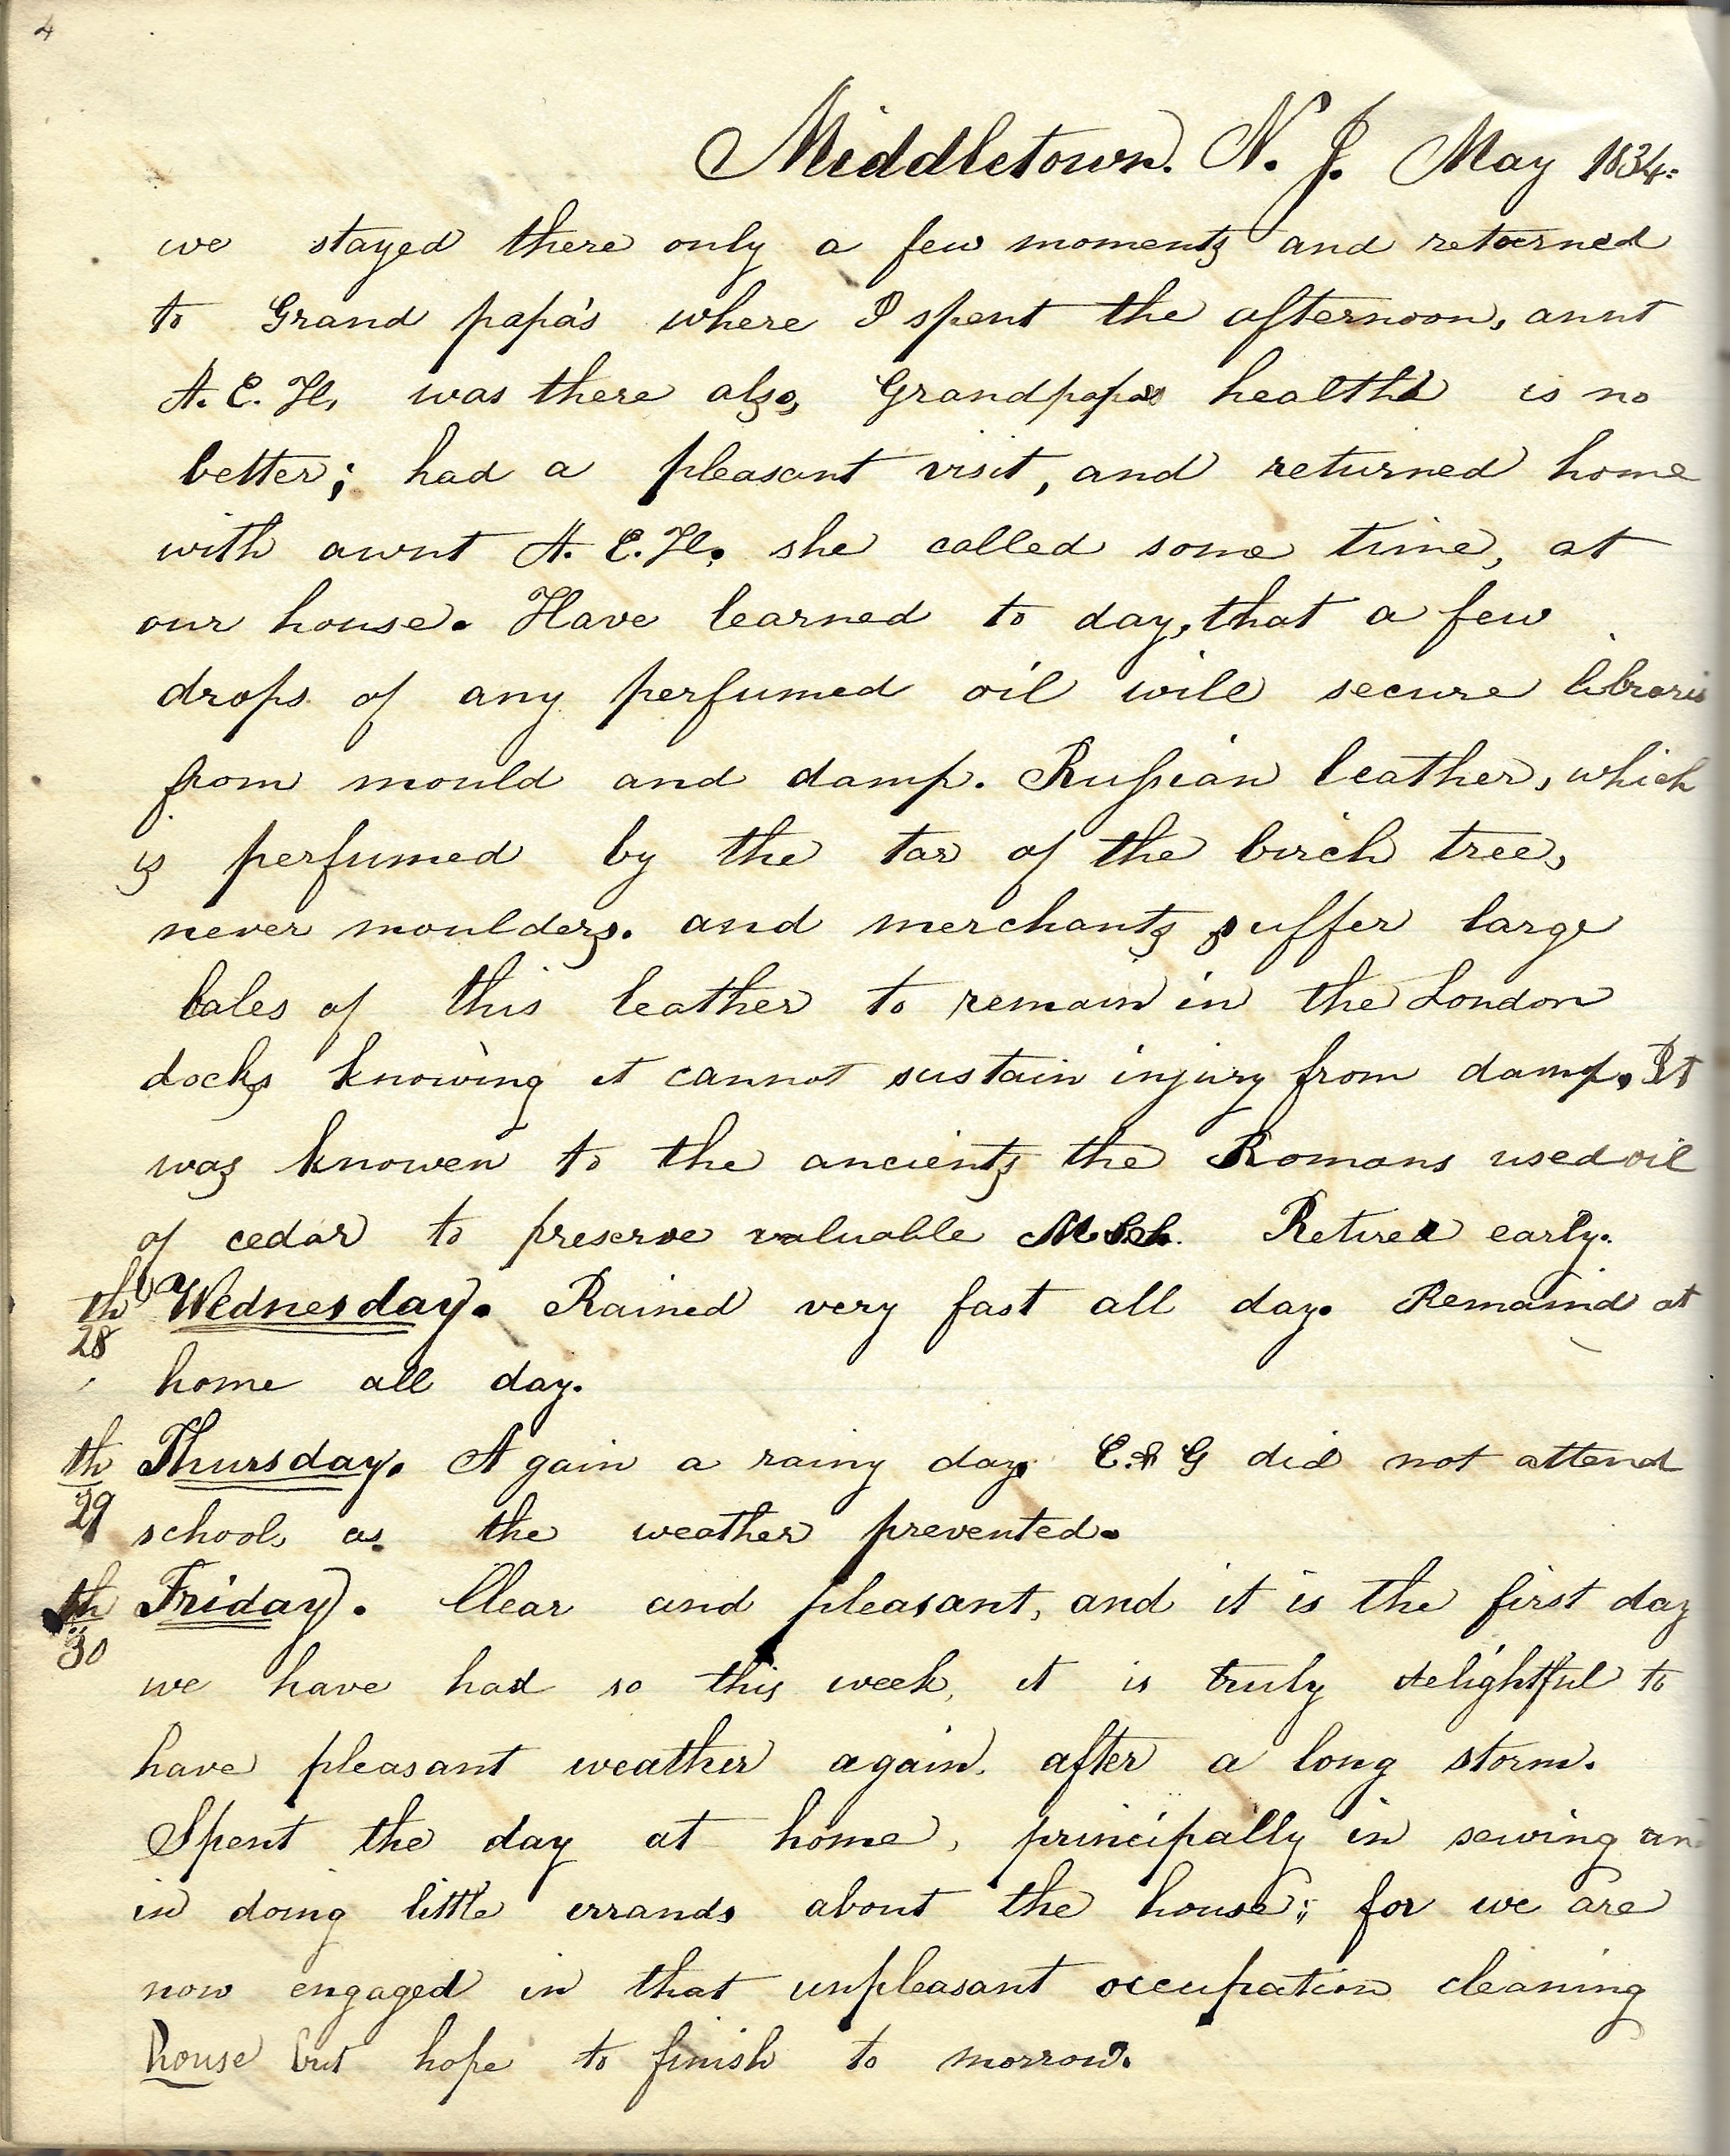 4
Middletown. N. J. May 1834.
we stayed there only a few moments and returned
to Grand papa's where I spent the afternoon, aunt
A. E. H. was there also, Grandpapas health is no
better; had a pleasant visit, and returned home
with awnt A. E. H. she called some time, at
our house. Have learned to day, that a few
drops of any perfumed oil will secure libraris
from mould and damp. Russian leather, which
is perfumed by the tar of the birch tree,
never moulders. and merchants suffer large
bales of this leather to remain in the London
docks knowing it cannot sustain injury from damp. It
was knowen to the ancients the Romans used oil
of cedar to preserve valuable Retired early.
th 28 Wednesday. Rained very fast all day. Remaind at
home all day.
th 29 Thursday. Again a rainy day. E. & G did not attend
school, as the weather prevented.
th 30 Friday. Clear and pleasant, and it is the first day
we have had so this week, it is truly delightful to
have pleasant weather again. after a long storm.
Spent the day at home, principally in sewing an
in doing little errands about the house; for we are
now engaged in that unpleasant occupation cleaning
house but hope to finish to morrow.